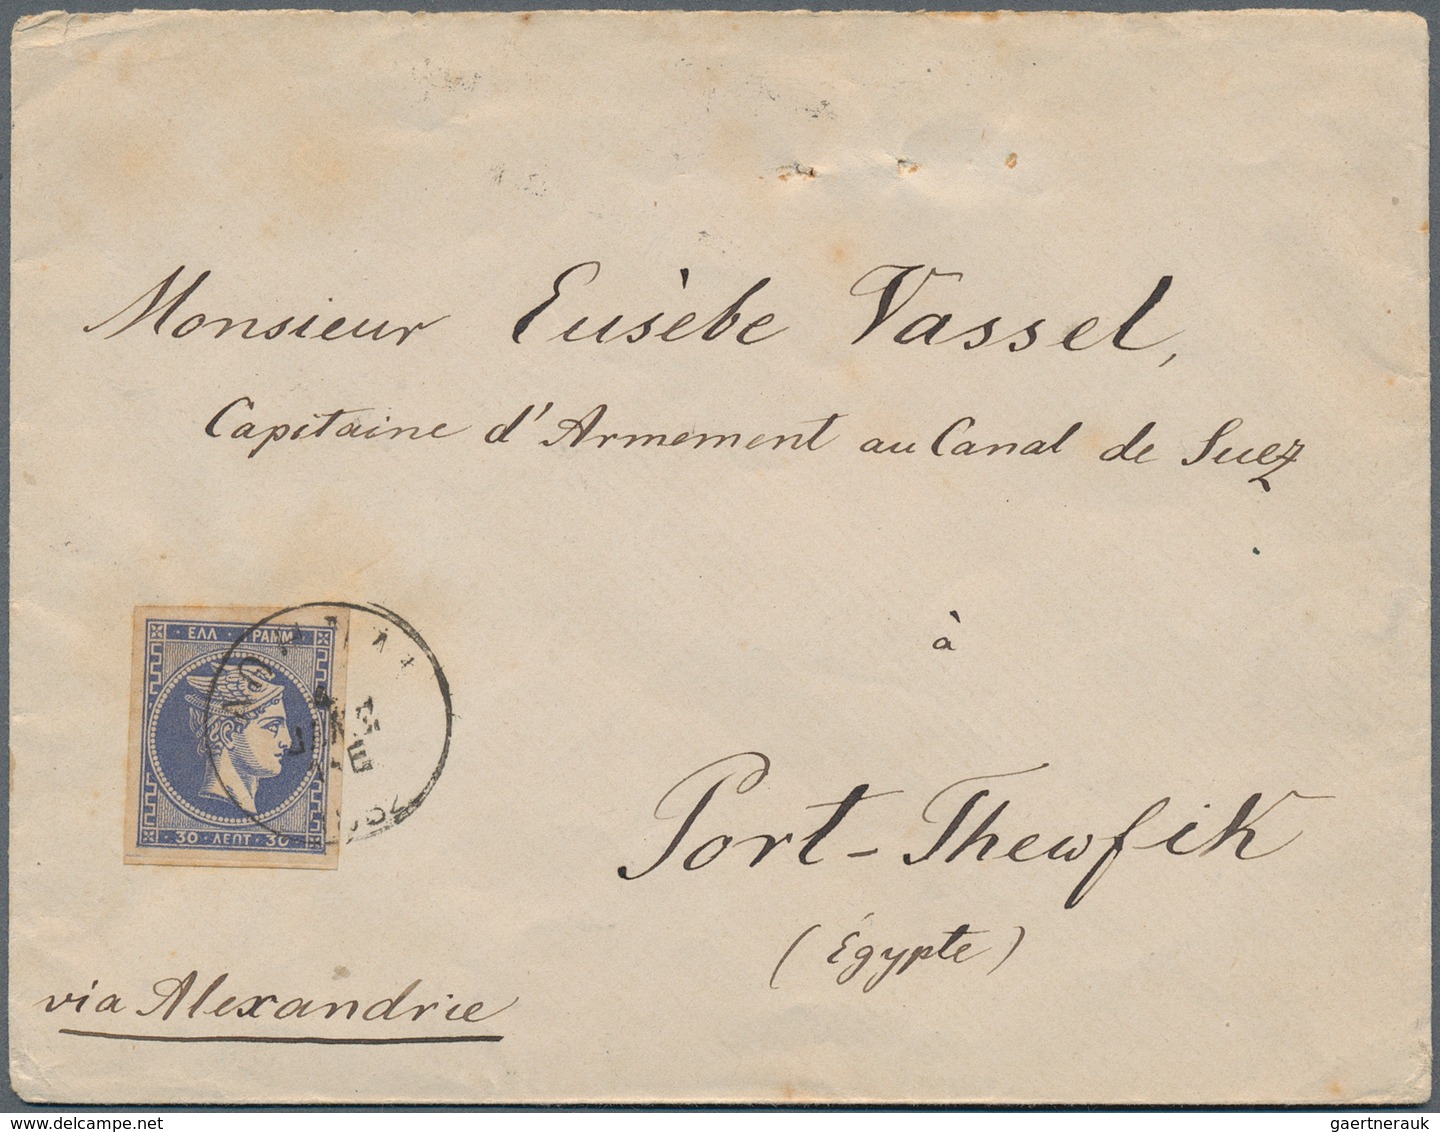 Monsieur Eusèbe Vassel,
Capitaine d'Armement au Canal de Suez
à
Port-Thewfik
(Égypte)
via Alexandrie
ΕΛΛ ΓΡΑΜΜ
30 · ΛΕΠΤ · 30
delcampe.net
gaertnerauk